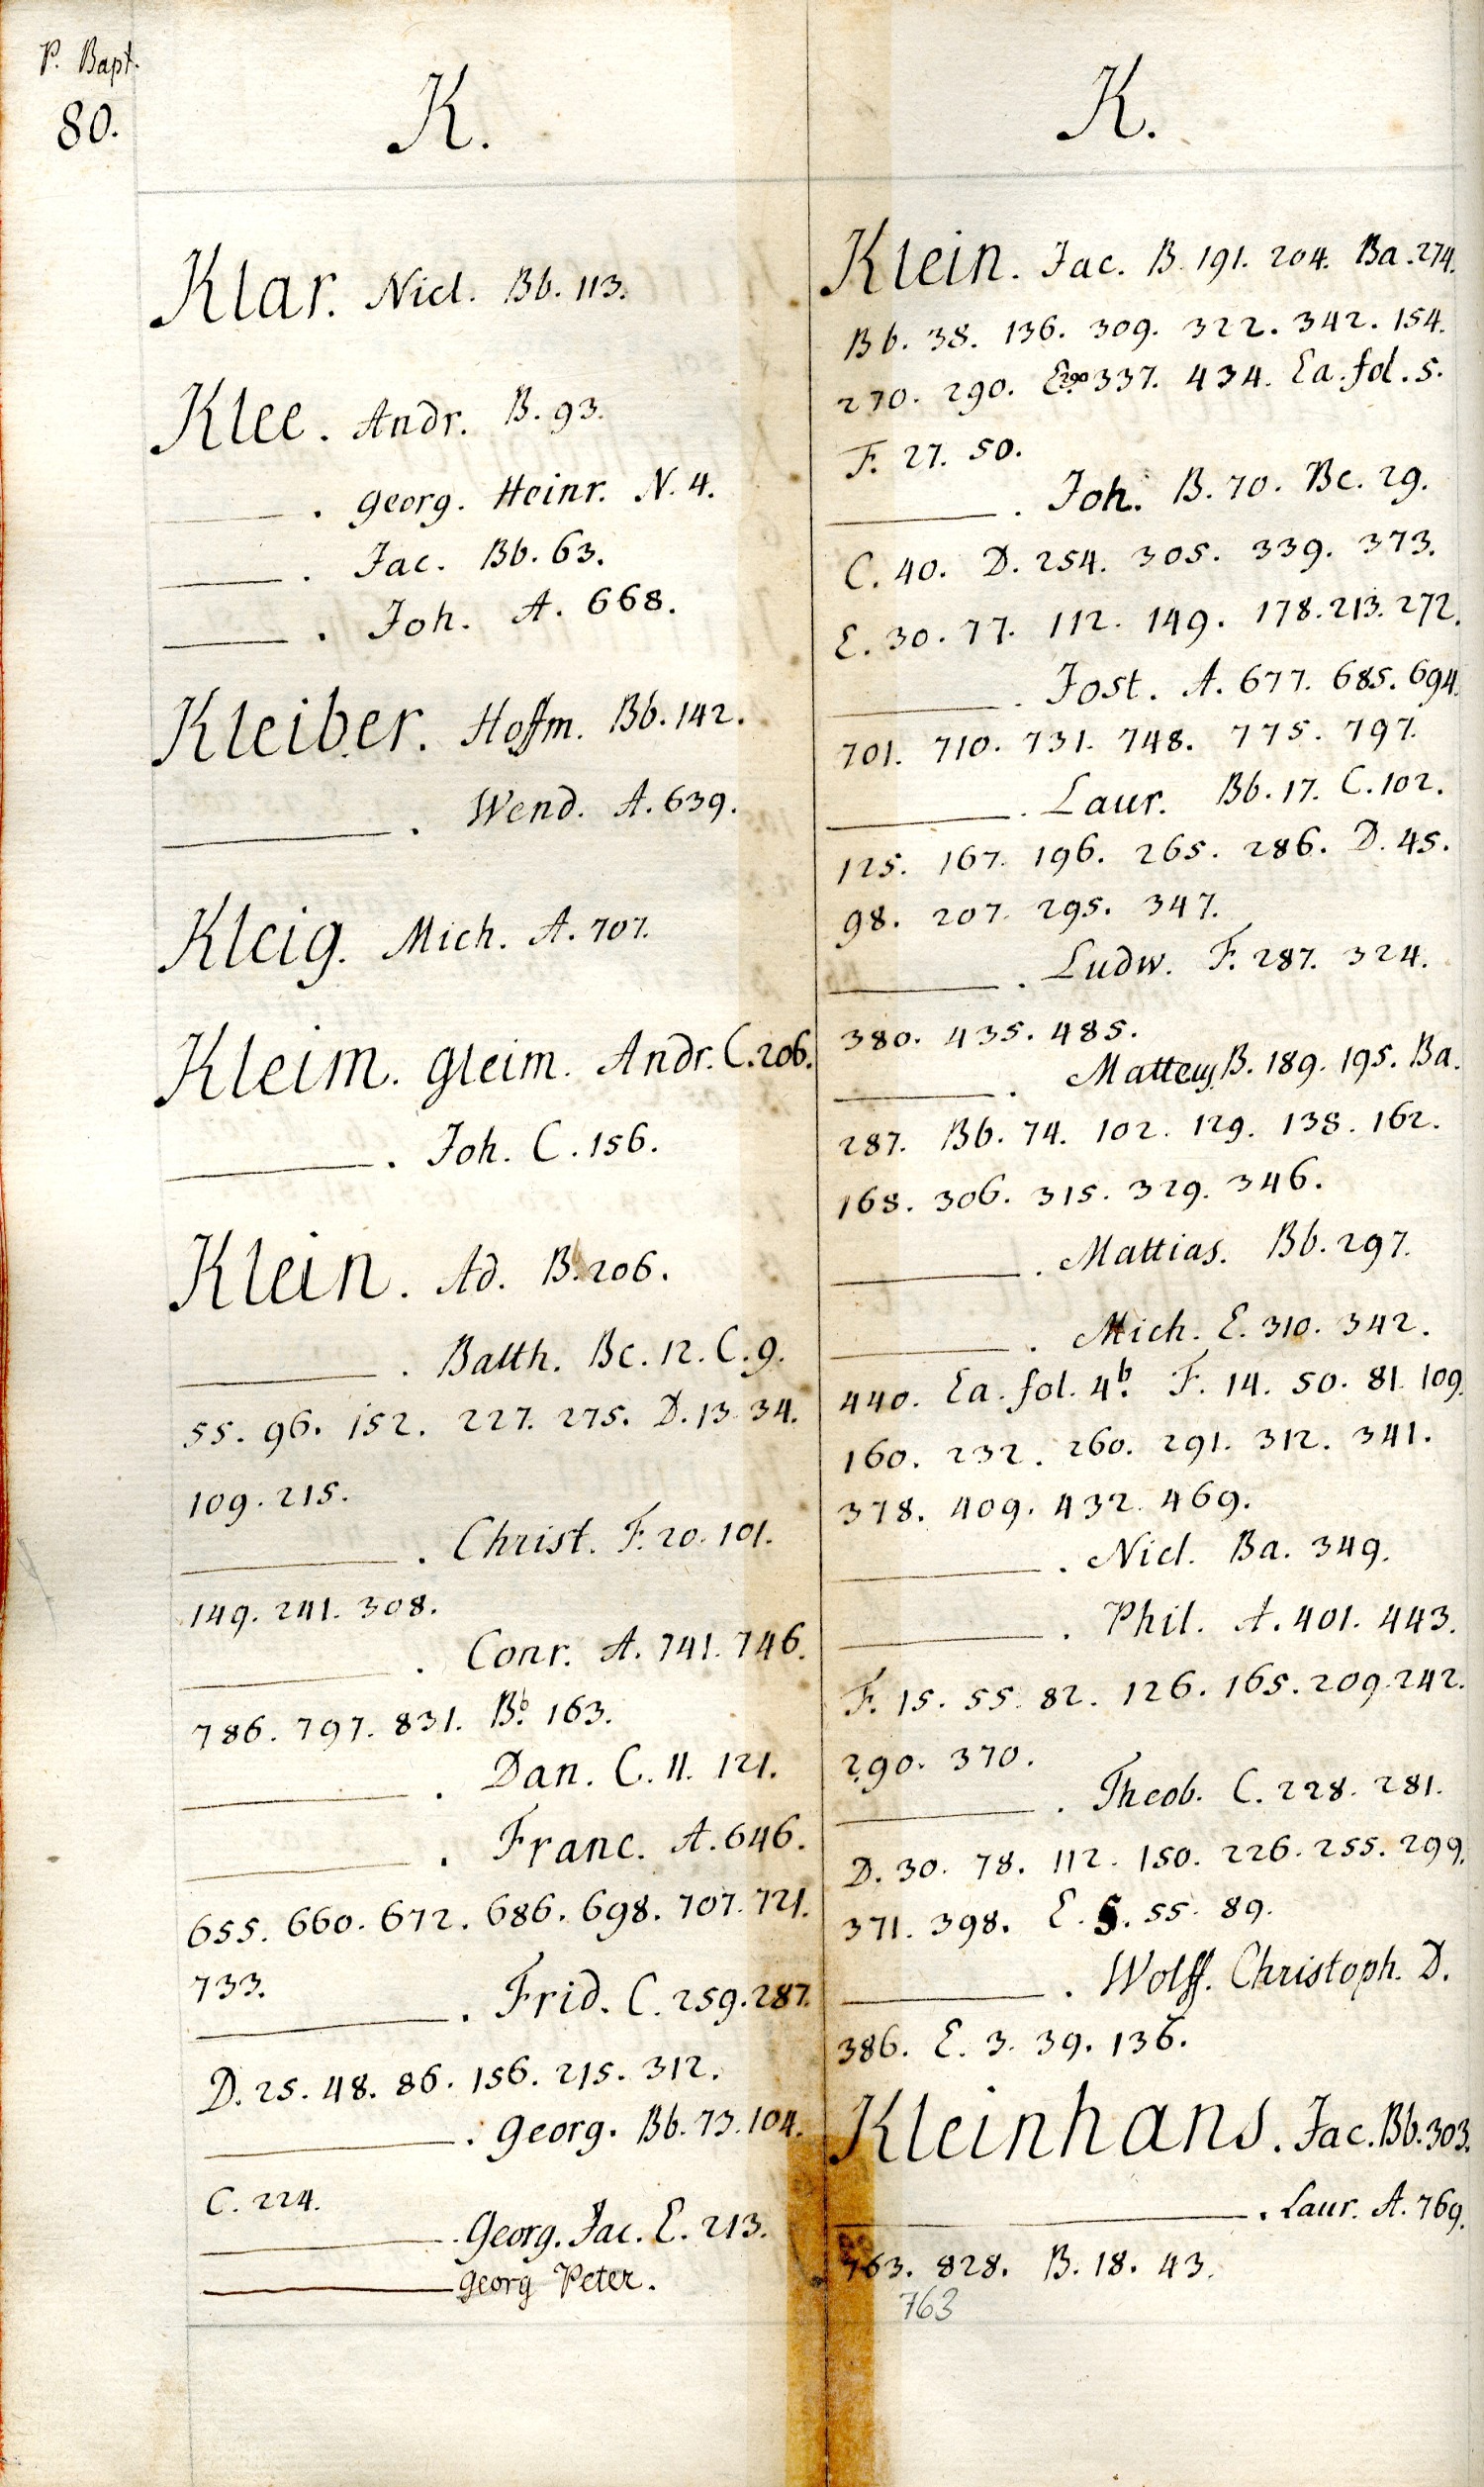 P. Bapt.
80.
K.
Klar. Nicl. Bb. 113.
Klee. Andr. B. 93.
———. Georg. Heinr. N. 4.
———. Jac. Bb. 63.
———. Joh. A. 668.
Kleiber. Hoffm. Bb. 142.
———. Wend. A. 639.
Kleig. Mich. A. 707.
Kleim. Gleim. Andr. C. 206.
———. Joh. C. 156.
Klein. Ad. B. 206.
———. Balth. Bc. 12. C. 9.
55. 96. 152. 227. 275. D. 13. 34.
109. 215.
———. Christ. F. 20. 101.
149. 241. 308.
———. Conr. A. 741. 746.
786. 797. 831. Bb. 163.
———. Dan. C. 11. 121.
———. Franc. A. 646.
655. 660. 672. 686. 698. 707. 721.
733.
———. Frid. C. 259. 287.
D. 25. 48. 86. 156. 215. 312.
———. Georg. Bb. 73. 104.
C. 224.
———. Georg. Jac. E. 213.
——— Georg Peter.
K.
Klein. Jac. B. 191. 204. Ba. 274.
Bb. 38. 136. 309. 322. 342. 154.
270. 290. E. 290 337. 434. Ea. fol. 5.
F. 27. 50.
———. Joh. B. 70. Bc. 29.
C. 40. D. 254. 305. 339. 373.
E. 30. 77. 112. 149. 178. 213. 272.
———. Jost. A. 677. 685. 694.
701. 710. 731. 748. 775. 797.
———. Laur. Bb. 17. C. 102.
125. 167. 196. 265. 286. D. 45.
98. 207. 295. 347.
———. Ludw. F. 287. 324.
380. 435. 485.
———. B. 189. 195. Ba.
287. Bb. 74. 102. 129. 138. 162.
168. 306. 315. 329. 346.
———. Mattias. Bb. 297.
———. Mich. E. 310. 342.
440. Ea. fol. 4b. F. 14. 50. 81. 109.
160. 232. 260. 291. 312. 341.
378. 409. 432. 469.
———. Nicl. Ba. 349.
———. Phil. A. 401. 443.
F. 15. 55. 82. 126. 165. 209. 242.
290. 370.
———. Theob. C. 228. 281.
D. 30. 78. 112. 150. 226. 255. 299.
371. 398. E. 5. 55. 89.
———. Wolff. Christoph. D.
386. E. 3. 39. 136.
Kleinhans. Jac. Bb. 303.
———. Laur. A. 769.
763. 828. B. 18. 43.
763